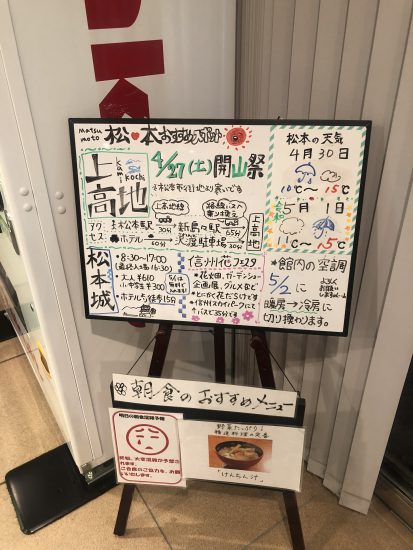 matsu
moto
松♥本おすすめスポット
上高地
kami
kochi
4/27(土)開山祭
※松本市街地より寒いです
上高地線
路線バスへ
乗り換え
アクセス
松本駅
30分
新島々駅
上高地
ホテル
沢渡駐車場
30分
松本城
・8:30~17:00
・大人¥610
小・中学生¥300
・ホテルから徒歩15分
信州花フェスタ
・花火田、ガーデンショー
企画展、グルメなど
・とにかく花だらけです
・信州スカイパークにて
バスで35分です
松本の天気
4月30日
10℃~15℃
令和
5月1日
11℃~15℃
*館内の空調
5/2に
暖房→冷房に
切り換わります。
朝食のおすすめメニュー
明日の朝食混雑予報
終始、大変混雑が予想さ
れます。
ご会食のご協力を、お願
いいたします。
野菜たっぷり!
精進料理の定番
「けんちん汁」